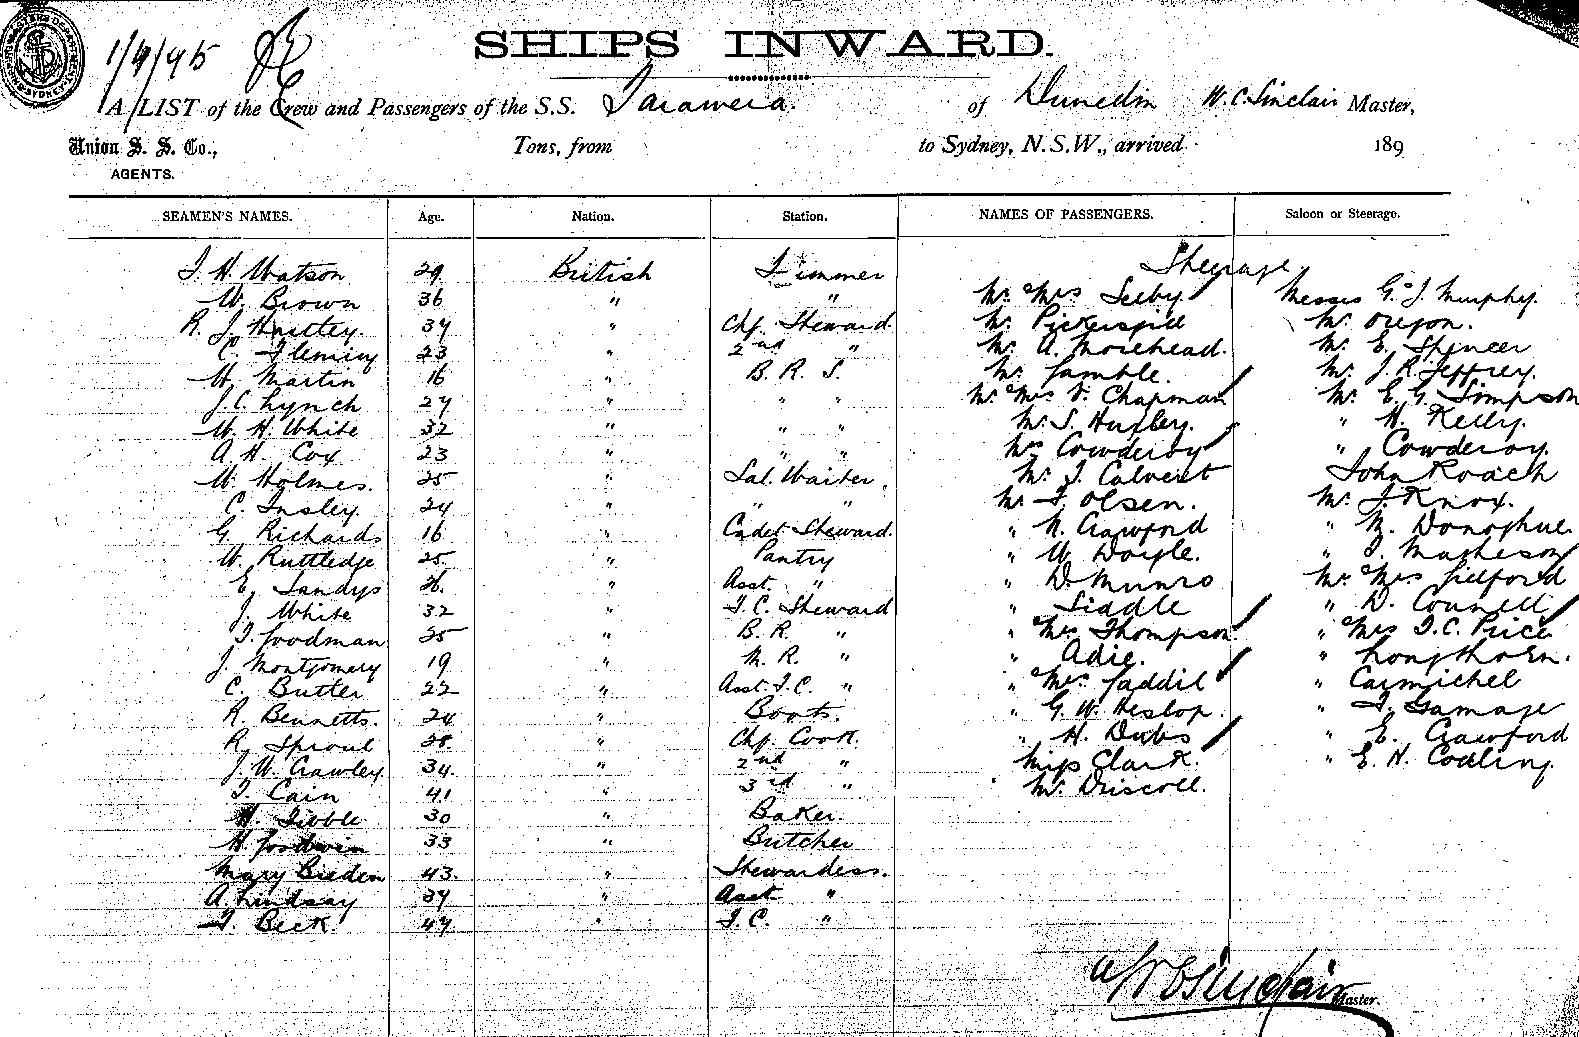 1/9/95
SHIPS INWARD.
A LIST of the Crew and Passengers of the S.S. Tarawera. of Dunedin W. C. Sinclair Master,
Union S. S. Co., Tons, from to Sydney, N.S.W., arrived 189
AGENTS.
SEAMEN'S NAMES. Age. Nation. Station. NAMES OF PASSENGERS. Saloon or Steerage.
Steerage
J. H. Watson 29 British Trimmer
W. Brown 36 " " Mr & Mrs Selby Messrs G. & J. Murphy.
R. J. Hartley. 39 " Chf. Steward Mr. Pickersgill Mr. Oregon.
C. Fleming 23 " 2nd " Mr. A. Morehead. Mr. E. Spencer
H. Martin 16 " B. R. S. Mr. Gamble. Mr. J. R. Jeffrey.
J. C. Lynch 27 " " " Mr. & Mrs V. Chapman Mr. E. G. Simpson
W. H. White 32 " " " Mr. S. Hugley. " H. Kelly.
A. H. Cox 23 " " " Mrs Cowderoy " Cowderoy.
W. Holmes. 25 " Sal. Waiter. Mr. J. Calvert John Roach
C. Insley. 24 " " " Mr. J. Olsen. Mr. J. Knox.
G. Richards 16 " Cadet Steward. " N. Crawford " M. Donoghue
W. Ruttledge 25 " Pantry " W. Doyle. " J. Matheson
E. Sandys 26 " Asst. " " D. Munro Mr. & Mrs Gilford
J. White 32 " F.C. Steward " Siddle " D. Connell
T. Goodman 25 " B. R. " " Mrs Thompson. " Mrs T. C. Price
J. Montgomery 19 " M. R. " " Adie. " Longthorn.
C. Butler 22 " Asst. F.C. " " Mrs Gaddil " Carmichel
R. Bennetts. 24 " Boots. " G. W. Heslop. " T. Gamage
R. Sproul 28 " Chf. Cook. " H. Dubs " E. Crawford
J. W. Crawley. 34. " 2nd " Miss Clark. " E. H. Codling.
T. Cain 41 " 3rd " Mr. Driscoll.
H. Tibble 30 " Baker.
H. Goodwin 33 " Butcher
Mary Bieden 43. " Stewardess.
A. Lindsay 39 " Asst. "
T. Beck 47 " F.C. "
W C Sinclair Master.